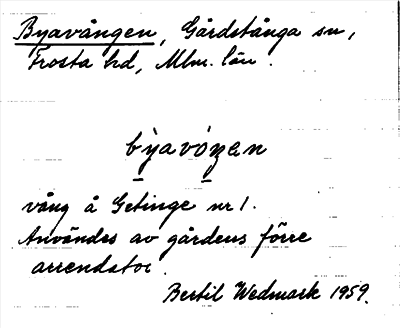 Byavången, Gårdstånga sn,
Frosta hd, Mlm. län.
b̲ỳavó̲ŋen
vång å Getinge nr 1.
Användes av gårdens förre
arrendator.
Bertil Wedmark 1959.